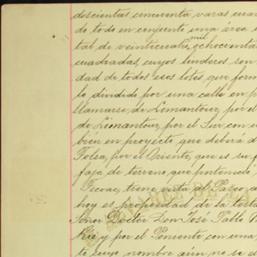 descientas cincuenta varas cuad
de todo en conjunto una área to
tal de veinticuatro mil ochocientas
cuadradas, cuyos linderos son
dad de todos esos lotes, que form
lo dividido por una calle en p
llamarse, de Limantour, por el
de Limantour, por el Sur con u
bien en proyecto que deberá d
Tolsa, por el Oriente, que es su f
faja de terreno que pertenció
tiene vista al Paseo
hoy es propiedad de la testa
Señor Doctor Don José Pablo
Río y por el Poniente con una
te cuyo nombre aún no se d